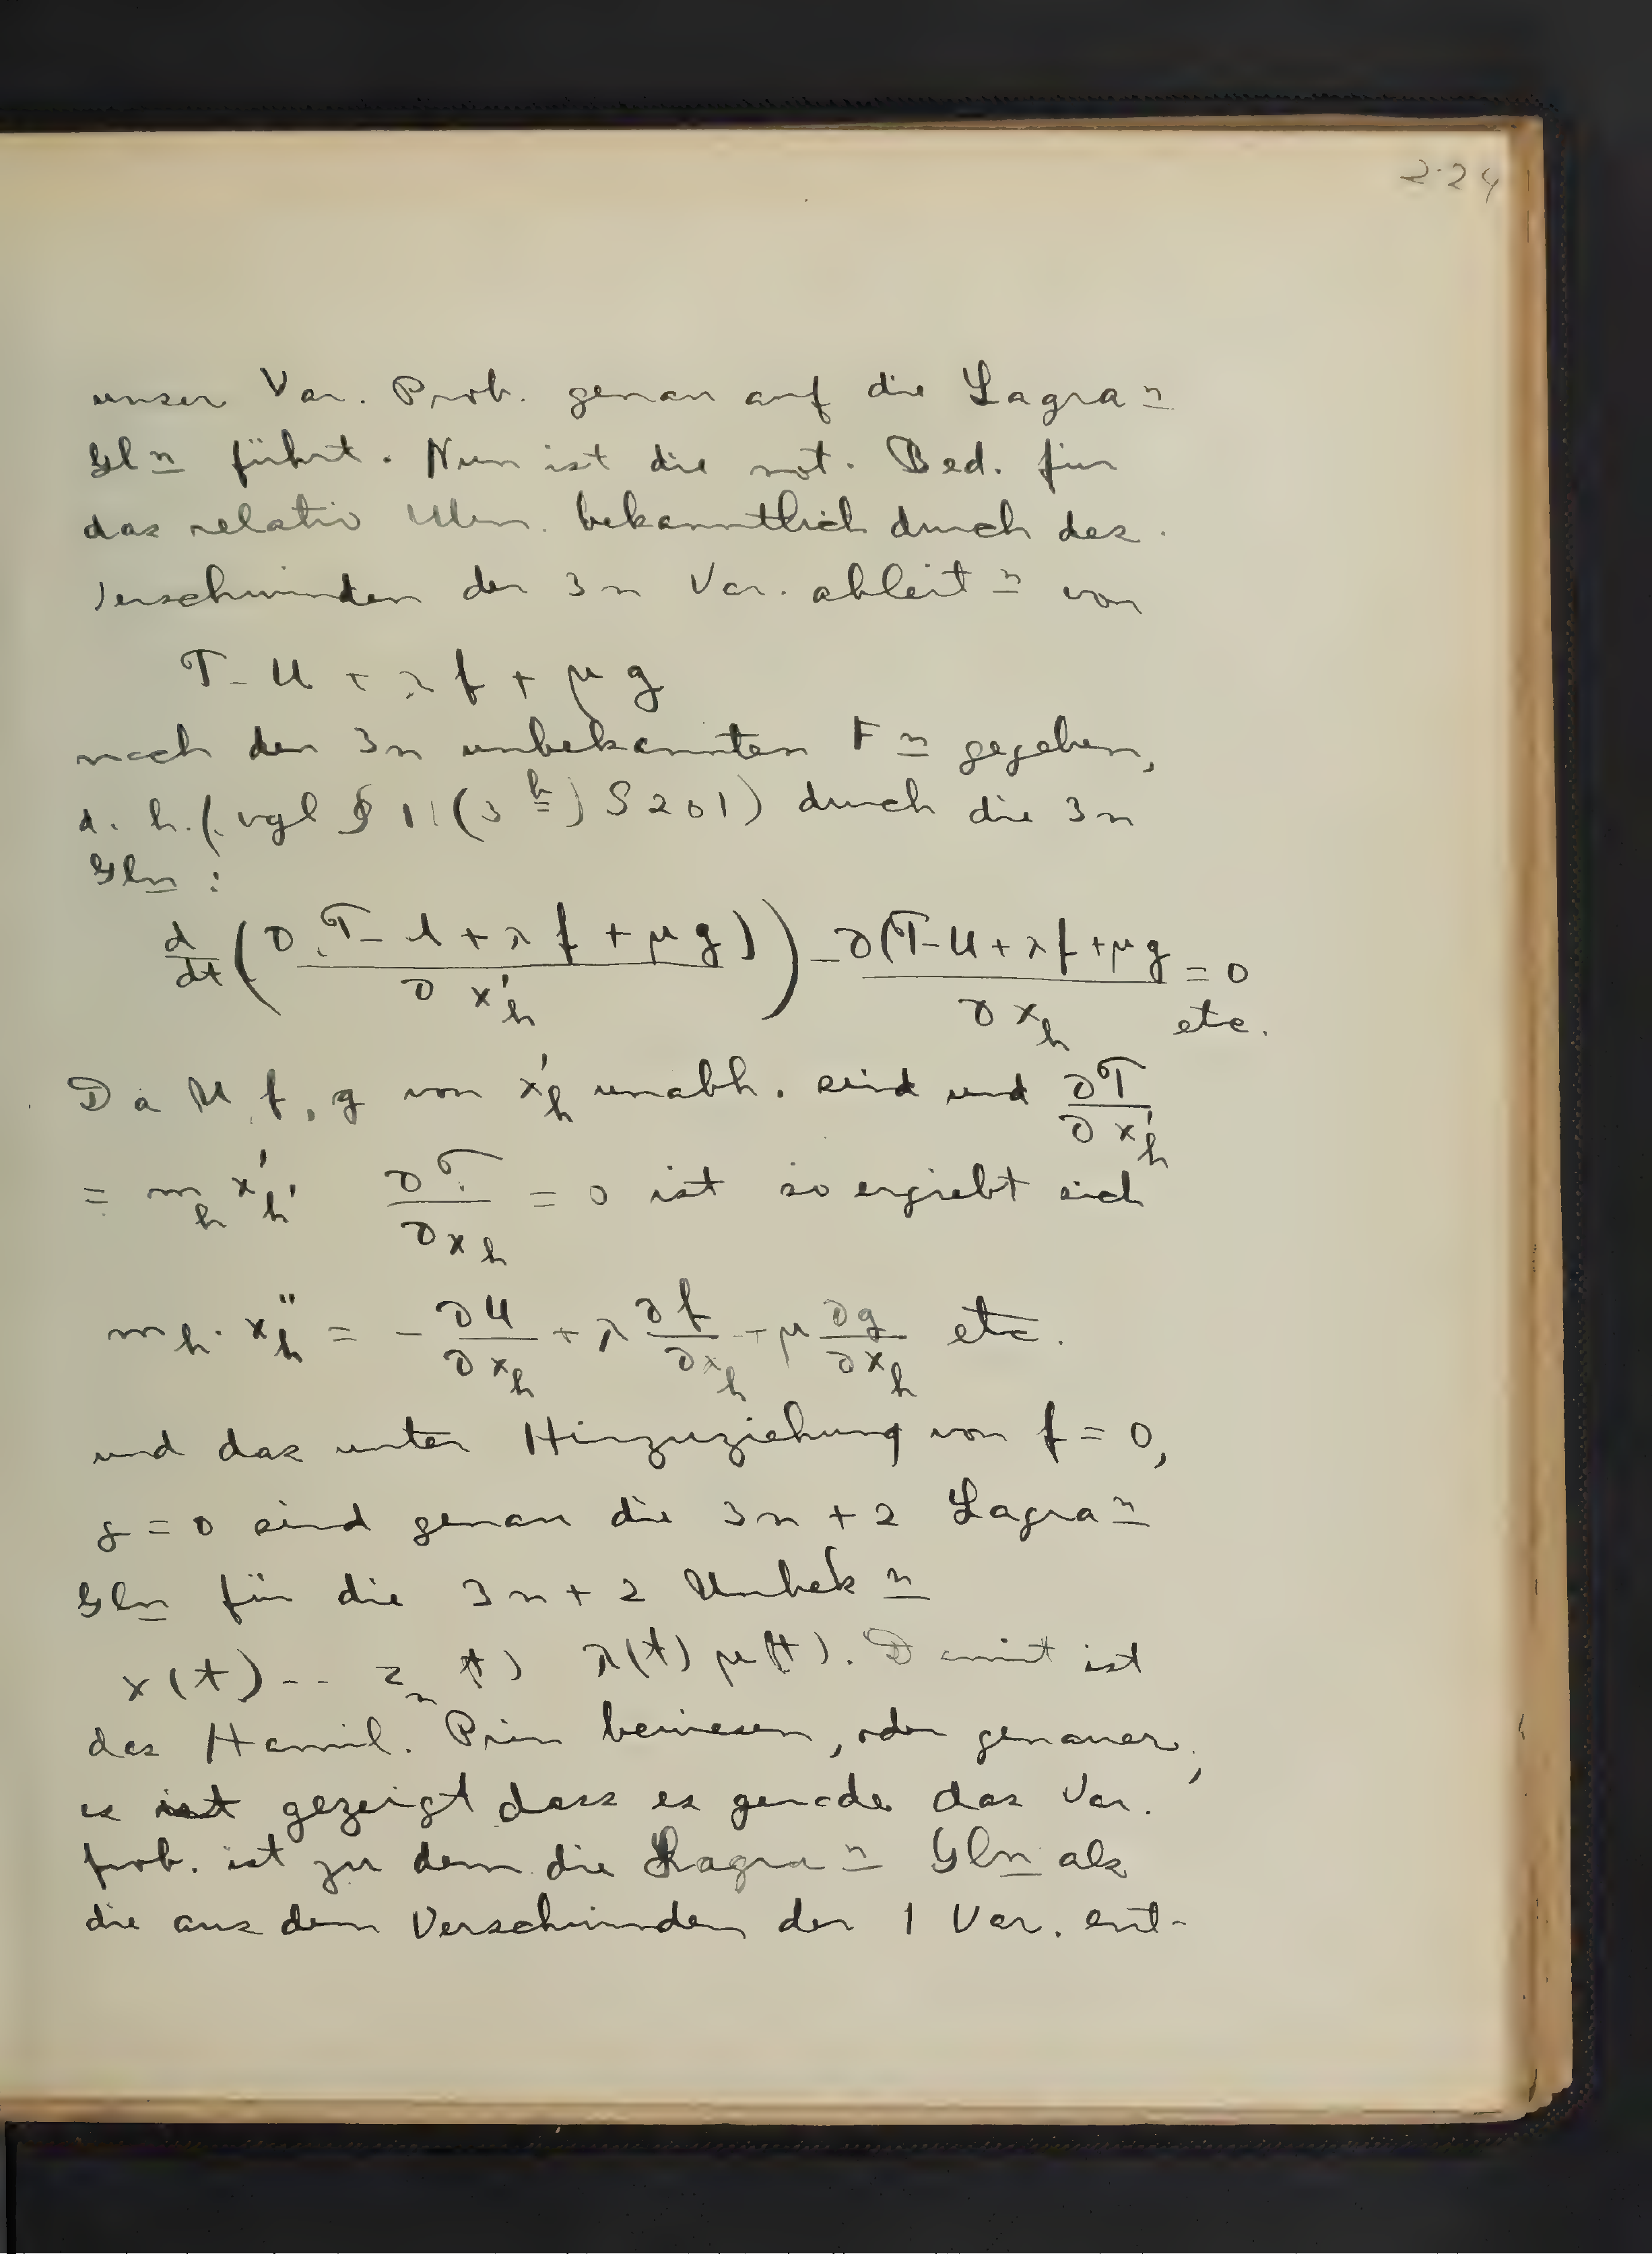 224
unser Var. Prob. genau auf die Lagra n
Gln führt. Nun ist die not. Bed. für
das relativ Min. bekanntlich durch das
Verschwinden der 3n Var. ableit n von
T - U + λf + μg
nach den 3n unbekannten F n gegeben,
d. h. (vgl § 11 (3 h) S 201) durch die 3n
Gln :
d/dt (∂(T - U + λf + μg)/∂x'_h) - ∂(T - U + λf + μg/∂x_h = 0
etc.
Da U, f, g von x'_h unabh. sind und ∂T/∂x'_h
= m_h x'_h, ∂T/∂x_h = 0 ist so ergiebt sich
m_h · x''_h = - ∂U/∂x_h + λ ∂f/∂x_h + μ ∂g/∂x_h etc.
und das unter Hinzuziehung von f = 0,
g = 0 sind genau die 3n + 2 Lagra n
Gln für die 3n + 2 Unbek n
x(t) -- z_n(t) λ(t) μ(t). Damit ist
das Hamil. Prin bewiesen, oder genauer,
es ist gezeigt dass es gerade das Var.
prob. ist zu dem die Lagra n Gln als
die aus dem Verschwinden der 1 Var. ent-